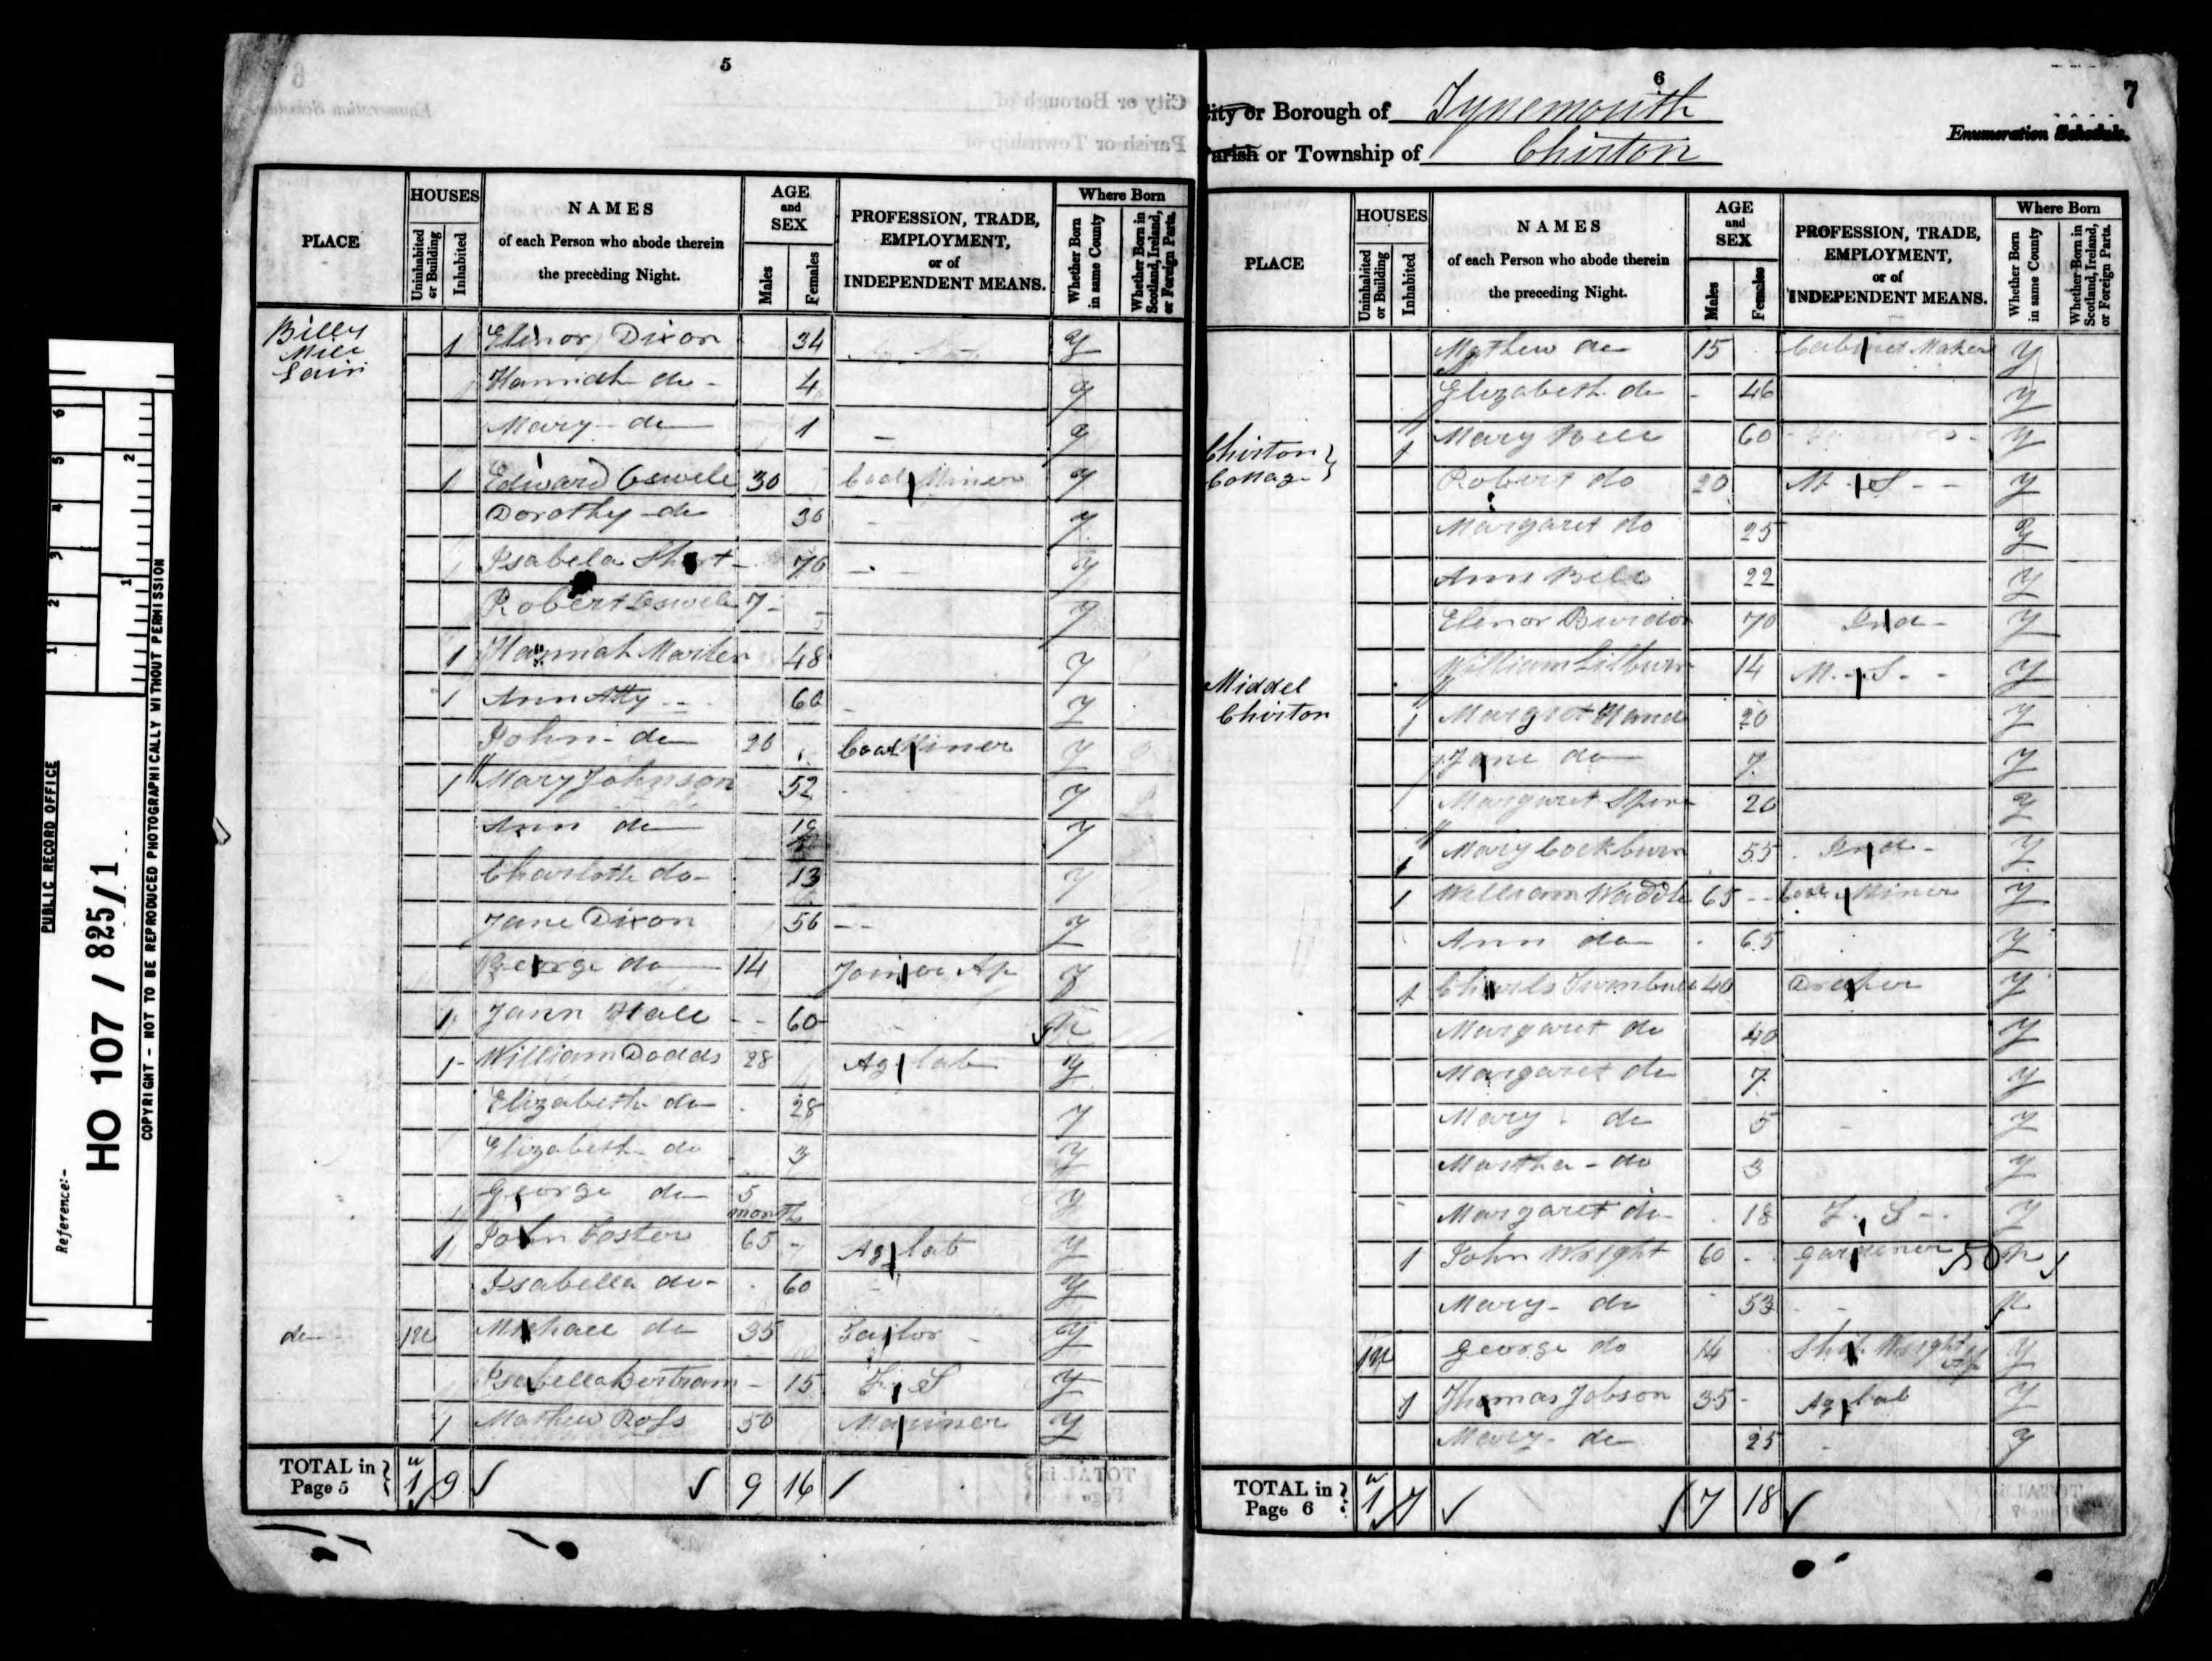 5
PLACE
HOUSES
Uninhabited or Building
Inhabited
NAMES
of each Person who abode therein
the preceding Night.
AGE
and
SEX
Males
Females
PROFESSION, TRADE,
EMPLOYMENT,
or of
INDEPENDENT MEANS.
Where Born
Whether Born in same County
Whether Born in Scotland, Ireland, or Foreign Parts.
Billy
Mill
1 Elinor Dixon 34 y
Hannah do 4 y
Mary do 1 y
1 Edward 30 Coal Miner y
Dorothy do 30 y
Isabela Short 70 y
Robert 7 y
1 Hannah 48 y
1 Ann Atty 60 y
John do 20 Coal Miner y
1 Mary Johnson 52 y
Ann do y
Charlotte do 13 y
Jane Dixon 56 y
George do 14 Joiner Ap y
1 Hall 60
1 William Dodds 28 Ag lab y
Elizabeth do 28 y
Elizabeth do 3 y
George do 5 months y
1 John Foster 65 Ag lab y
Isabella do 60 y
do 1U Michael do 35 Tailor y
Isabella Bertram 15 F S y
1 Mathew Ross 50 Mariner y
TOTAL in
Page 5
u
1 9 9 16
6
7
City or Borough of Tynemouth
Parish or Township of Chirton
Enumeration Schedule.
PLACE
HOUSES
Uninhabited or Building
Inhabited
NAMES
of each Person who abode therein
the preceding Night.
AGE
and
SEX
Males
Females
PROFESSION, TRADE,
EMPLOYMENT,
or of
INDEPENDENT MEANS.
Where Born
Whether Born in same County
Whether Born in Scotland, Ireland, or Foreign Parts.
Mathew do 15 Cabinet Maker y
Elizabeth do 46 y
Chirton 1 Mary Bell 60 y
Cottage Robert do 20 M S y
Margaret do 25 y
Ann Bell 22 y
Elenor 70 Ind y
William Lilburn 14 M S y
Middel
Chirton 1 Margret 20 y
Jane do 7 y
Margaret 20 y
1 Mary Cockburn 55 Ind y
1 William Waddle 65 Coal Miner y
Ann do 65 y
1 Charls Turnbull 40 Draper y
Margaret do 40 y
Margaret do 7 y
Mary do 5 y
Martha do 3 y
Margaret do 18 F S y
1 John Wright 60 Gardener
Mary do 53 n
1U George do 14 Ship Wright Ap y
1 Thomas Jobson 35 Ag lab y
Mary do 25 y
TOTAL in
Page 6
u
1 7 7 18
PUBLIC RECORD OFFICE
Reference:-
HO 107 / 825/1
COPYRIGHT - NOT TO BE REPRODUCED PHOTOGRAPHICALLY WITHOUT PERMISSION
1 2 3 4 5 6
1 2